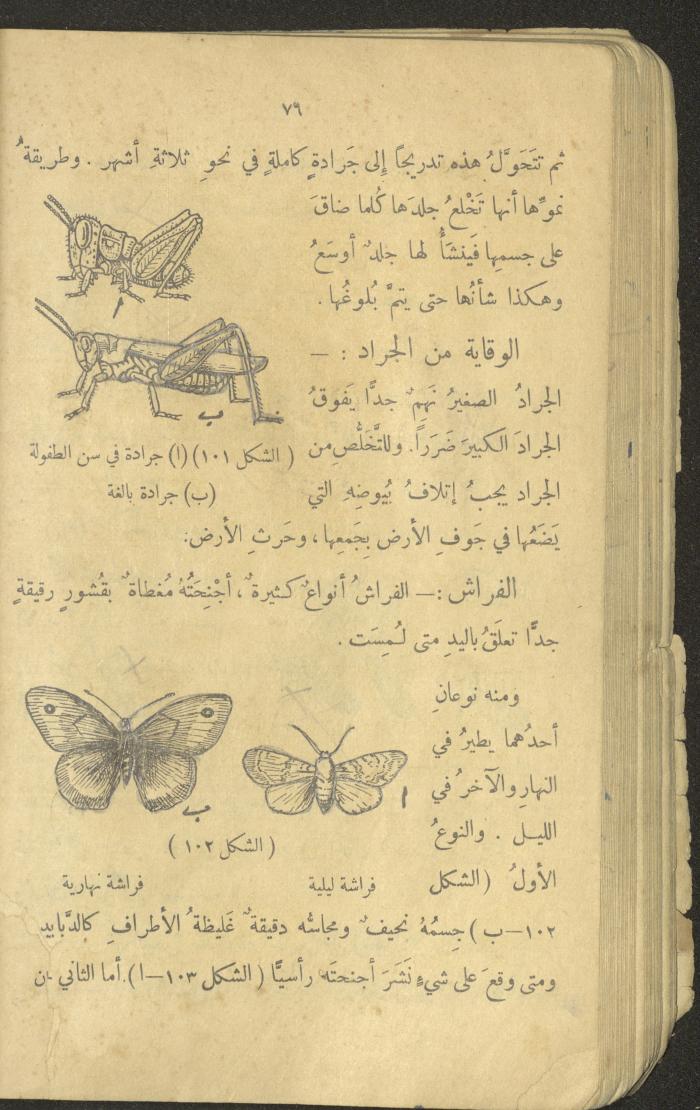 ٧٩
ثم تتَحَوَّلُ هذه تدريجاً إِلى جَرادةٍ كاملةٍ في نحوِ ثلاثةِ أشهر . وطريقةُ
نموِّها أنها تَخْلعُ جلدَها كُلما ضاقَ
على جسمِها فَيَنشَأُ لها جلدٌ أوسَعُ
وهكذا شأنُها حتى يتمَّ بُلوغُها .
الوقاية من الجراد : —
الجرادُ الصغيرُ نَهِمٌ جدًّا يَفوقُ
الجرادَ الكبيرَ ضَرَراً. وللتَّخَلُّصِ من
الجراد يجبُ إتلافُ بُيوضِهِ التي
يَضَعُها في جَوفِ الأرض بجَمعِها ، وحَرثِ الأرض.
ا
ب
( الشكل ١٠١) (ا) جرادة في سن الطفولة
(ب) جرادة بالغة
الفراش :— الفراشُ أنواعٌ كثيرةٌ ، أجْنِحَتُهُ مُغطاةٌ بقُشورٍ رقيقةٍ
جدًّا تعلَقُ باليدِ متى لُمِسَت .
ومنه نوعانِ
أحدُهما يطيرُ في
النهارِ والآخرُ في
الليل . والنوعُ
الأولُ (الشكل
ا
ب
( الشكل ١٠٢ )
فراشة ليلية
فراشة نهارية
١٠٢—ب ) جِسمُهُ نحيفٌ ومجاسُّه دقيقةٌ غَليظةُ الأطرافِ كالدَّبابيد
ومتى وقعَ على شيءٍ نَشَرَ أجنحتَه رأسيًّا ( الشكل ١٠٣—ا). أما الثاني